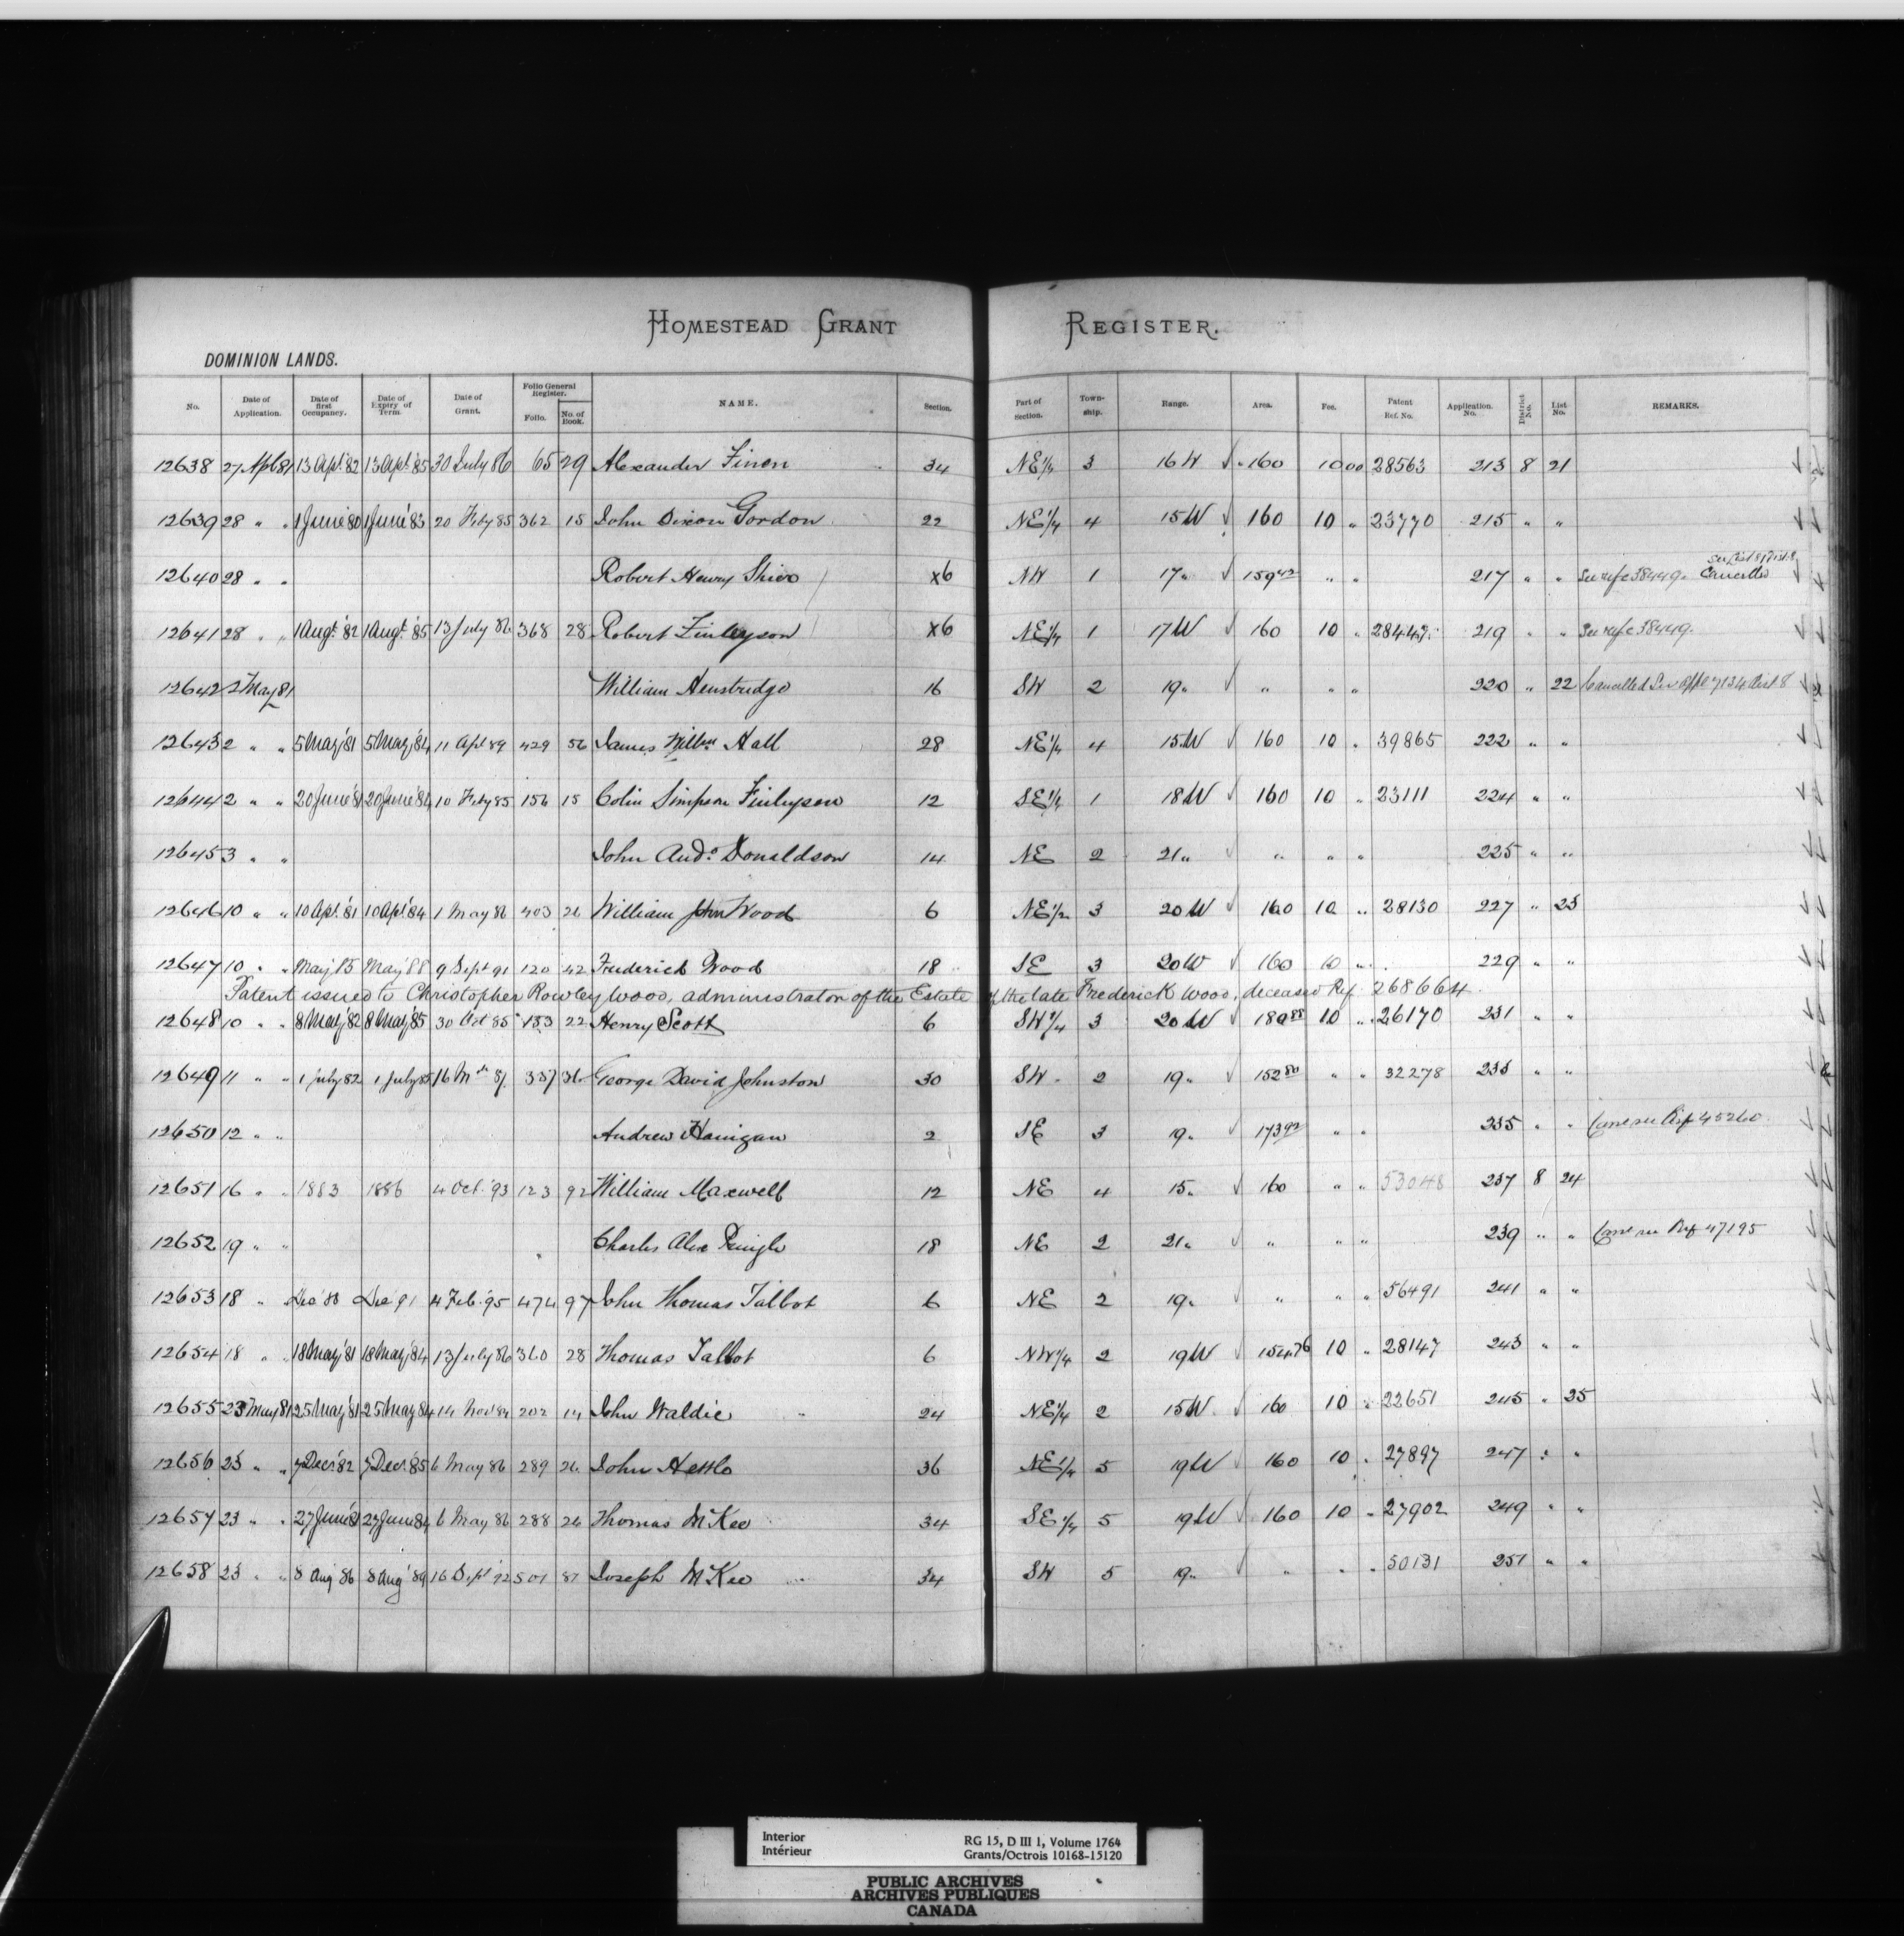 HOMESTEAD GRANT REGISTER.
DOMINION LANDS.
No. Date of Application. Date of first Occupancy. Date of Expiry of Term. Date of Grant. Folio General Register. Folio. No. of Book. NAME. Section. Part of Section. Township. Range. Area. Fee. Patent Ref. No. Application No. District No. List No. REMARKS.
12638 27 Apl 81 13 Apl '82 13 Apl '85 30 July 86 65 29 Alexander Finen 34 NE 1/4 3 16 W 160 10 00 28563 213 8 21
12639 28 " " 1 June '80 1 June '83 20 Feby 85 362 15 John Dixon Gordon 22 NE 1/4 4 15 W 160 10 " 23770 215 " "
12640 28 " " Robert Henry X6 NW 1 17 " 159 42 " " 217 " " See ref c 38449. Cancelled
12641 28 " " 1 Augt '82 1 Augt '85 13 July 86 368 28 Robert Finlayson X6 NE 1/4 1 17 W 160 10 " 28447 219 " " See ref c 38449.
12642 2 May 81 William Henstridge 16 SW 2 19 " " " " 220 " 22 Cancelled See Appl 7134 Dist 8
12643 2 " " 5 May '81 5 May '84 11 Apl 89 429 56 James Willm Hall 28 NE 1/4 4 15 W 160 10 " 39865 222 " "
12644 2 " " 20 June '81 20 June '84 10 Feby 85 156 15 Colin Simpson Finlayson 12 SE 1/4 1 18 W 160 10 " 23111 224 " "
12645 3 " " John Andw Donaldson 14 NE 2 21 " " " " 225 " "
12646 10 " " 10 Apl '81 10 Apl '84 1 May 86 403 26 William John Wood 6 NE 1/2 3 20 W 160 10 " 28130 227 " 23
12647 10 " " May '85 May '88 9 Sept 91 120 42 Frederick Wood 18 SE 3 20 W 160 10 " 229 " "
Patent issued to Christopher Rowley Wood, administrator of the Estate of the late Frederick Wood, deceased Ref. 268664.
12648 10 " " 8 May '82 8 May '85 30 Oct 85 153 22 Henry Scott 6 SW 1/4 3 20 W 180 88 10 " 26170 231 " "
12649 11 " " 1 July 82 1 July 85 16 Mch 87 357 36 George David Johnston 30 SW 2 19 " 152 80 " " 32278 233 " "
12650 12 " " Andrew Hanigan 2 SE 3 19 " 173 92 " " 235 " " Canc see Ref 45260
12651 16 " " 1883 1886 4 Oct. '93 123 92 William Maxwell 12 NE 4 15 " 160 " " 53048 237 8 24
12652 19 " " Charles Alex Pringle 18 NE 2 21 " " " " 239 " " Canc see Ref 47195
12653 18 " Dec '88 Dec '91 4 Feb. '95 474 97 John Thomas Talbot 6 NE 2 19 " " " " 56491 241 " "
12654 18 " " 18 May '81 18 May '84 13 July 86 360 28 Thomas Talbot 6 NW 1/4 2 19 W 154 76 10 " 28147 243 " "
12655 23 May 81 25 May '81 25 May 84 14 Nov 84 202 14 John Waldie 24 NE 1/4 2 15 W 160 10 " 22651 245 " 25
12656 23 " " 7 Dec. 82 7 Dec. 85 6 May 86 289 26 John 36 NE 1/4 5 19 W 160 10 " 27897 247 " "
12657 23 " " 27 June '81 27 June 84 6 May 86 288 26 Thomas McKee 34 SE 1/4 5 19 W 160 10 " 27902 249 " "
12658 23 " " 8 Aug '86 8 Aug '89 16 Sept '92 501 87 Joseph McKee 34 SW 5 19 " " " " 50131 251 " "
Interior RG 15, D III 1, Volume 1764
Intérieur Grants/Octrois 10168-15120
PUBLIC ARCHIVES
ARCHIVES PUBLIQUES
CANADA